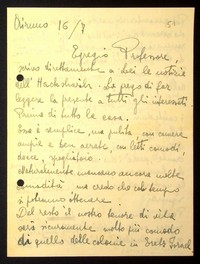 Oriveno 16/7
51
Egregio Professore,
scrivo direttamente a Lei le notizie
dell'Hachsharà. La prego di far
leggere la presente a tutti gli interessati
Prima di tutto la casa:
essa è semplice, ma pulita, con camere
ampie e ben aerate, con letti comodi,
docce, spogliatoio.
Naturalmente mancano ancora molte
comodità, ma credo che col tempo
si potranno ottenere.
Del resto il nostro tenore di vita
sarà sicuramente molto più comodo
di quello delle colonie in Erets Israel